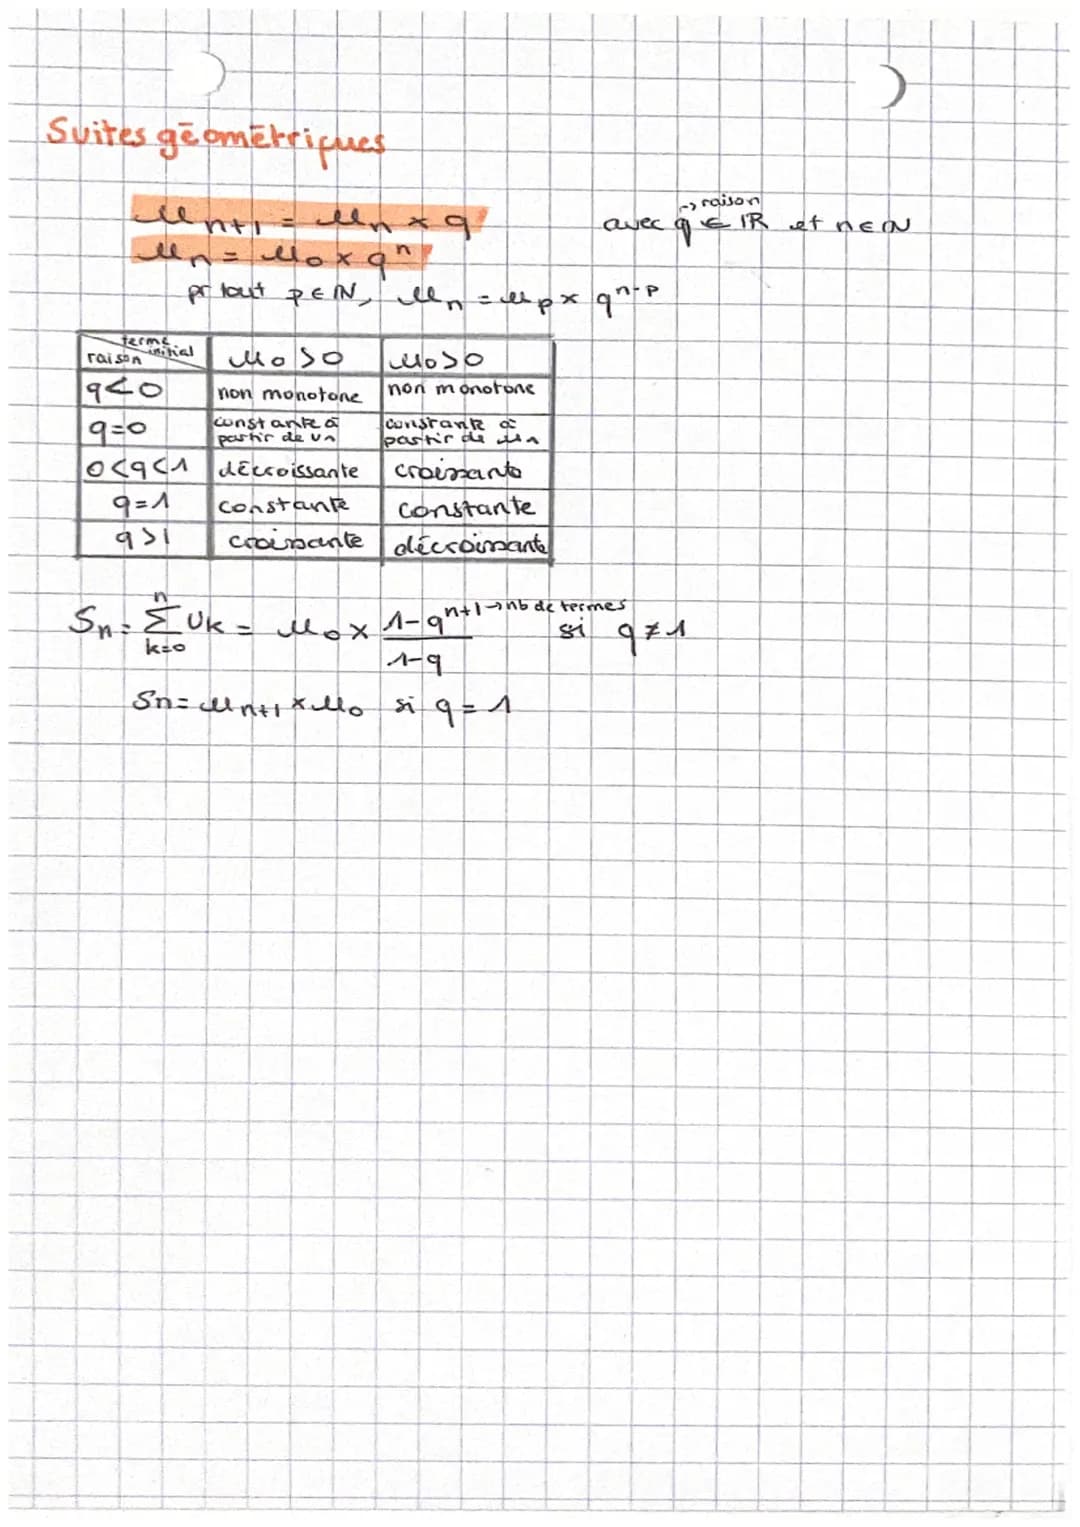 Suites géométriques
→ raison
Un+1 = Un × q avec q ∈ ℝ et n ∈ ℕ
Un = U0 × qⁿ
pr tout p ∈ ℕ, Un = Up × qⁿ⁻ᵖ
terme initial
raison U0 > 0 U0 > 0
q < 0 non monotone non monotone
q = 0 constante à partir de U1 constante à partir de U1
0 < q < 1 décroissante croissante
q = 1 constante constante
q > 1 croissante décroissante
Sn = ∑ₖ₌₀ⁿ Uk = U0 × (1 - qⁿ⁺¹)/(1 - q) → nb de termes si q ≠ 1
Sn = Un+1 × U0 si q = 1